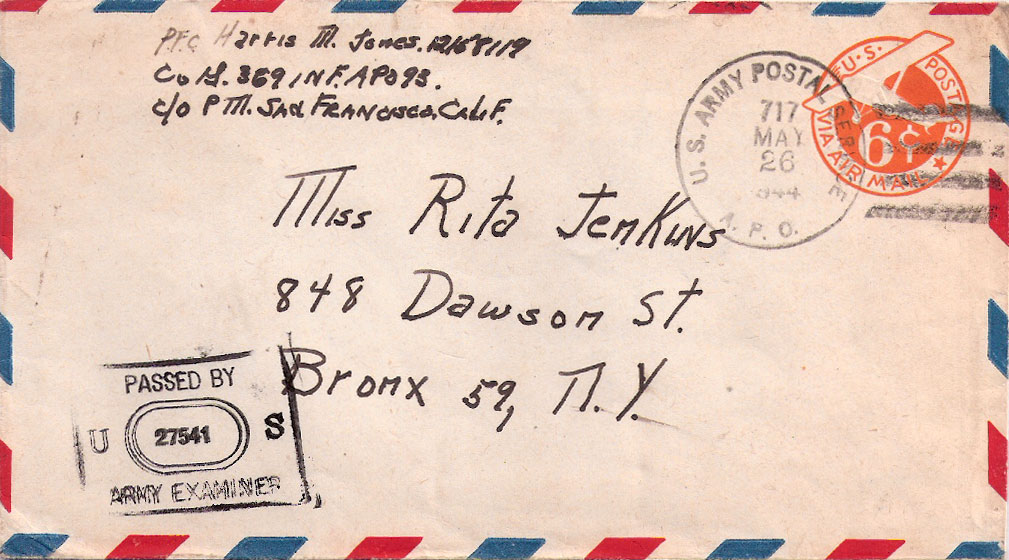 PFC Harris M. Jones. 12168119
Co G. 369 INF. APO 93.
c/o PM. San Francisco, Calif.
U.S. POSTAGE
VIA AIR MAIL
6¢
U.S. ARMY POSTAL SERVICE
717
MAY
26
1944
A.P.O.
Miss Rita Jenkins
848 Dawson St.
Bronx 59, N.Y.
PASSED BY
U 27541 S
ARMY EXAMINER